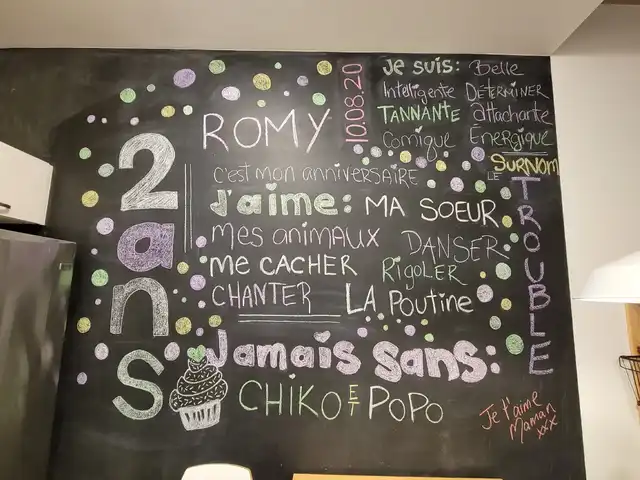 2 ans
ROMY
10.08.20
Je suis: Belle
Intelligente DÉTERMINER
TANNANTE attachante
Comique Énergique
SURNOM
LE TROUBLE
c'est mon anniversaire
J'aime: MA SOEUR
mes animaux DANSER
me CACHER RIGOLER
CHANTER LA POUTINE
Jamais sans:
CHIKO ET POPO
Je t'aime
Maman
xxx